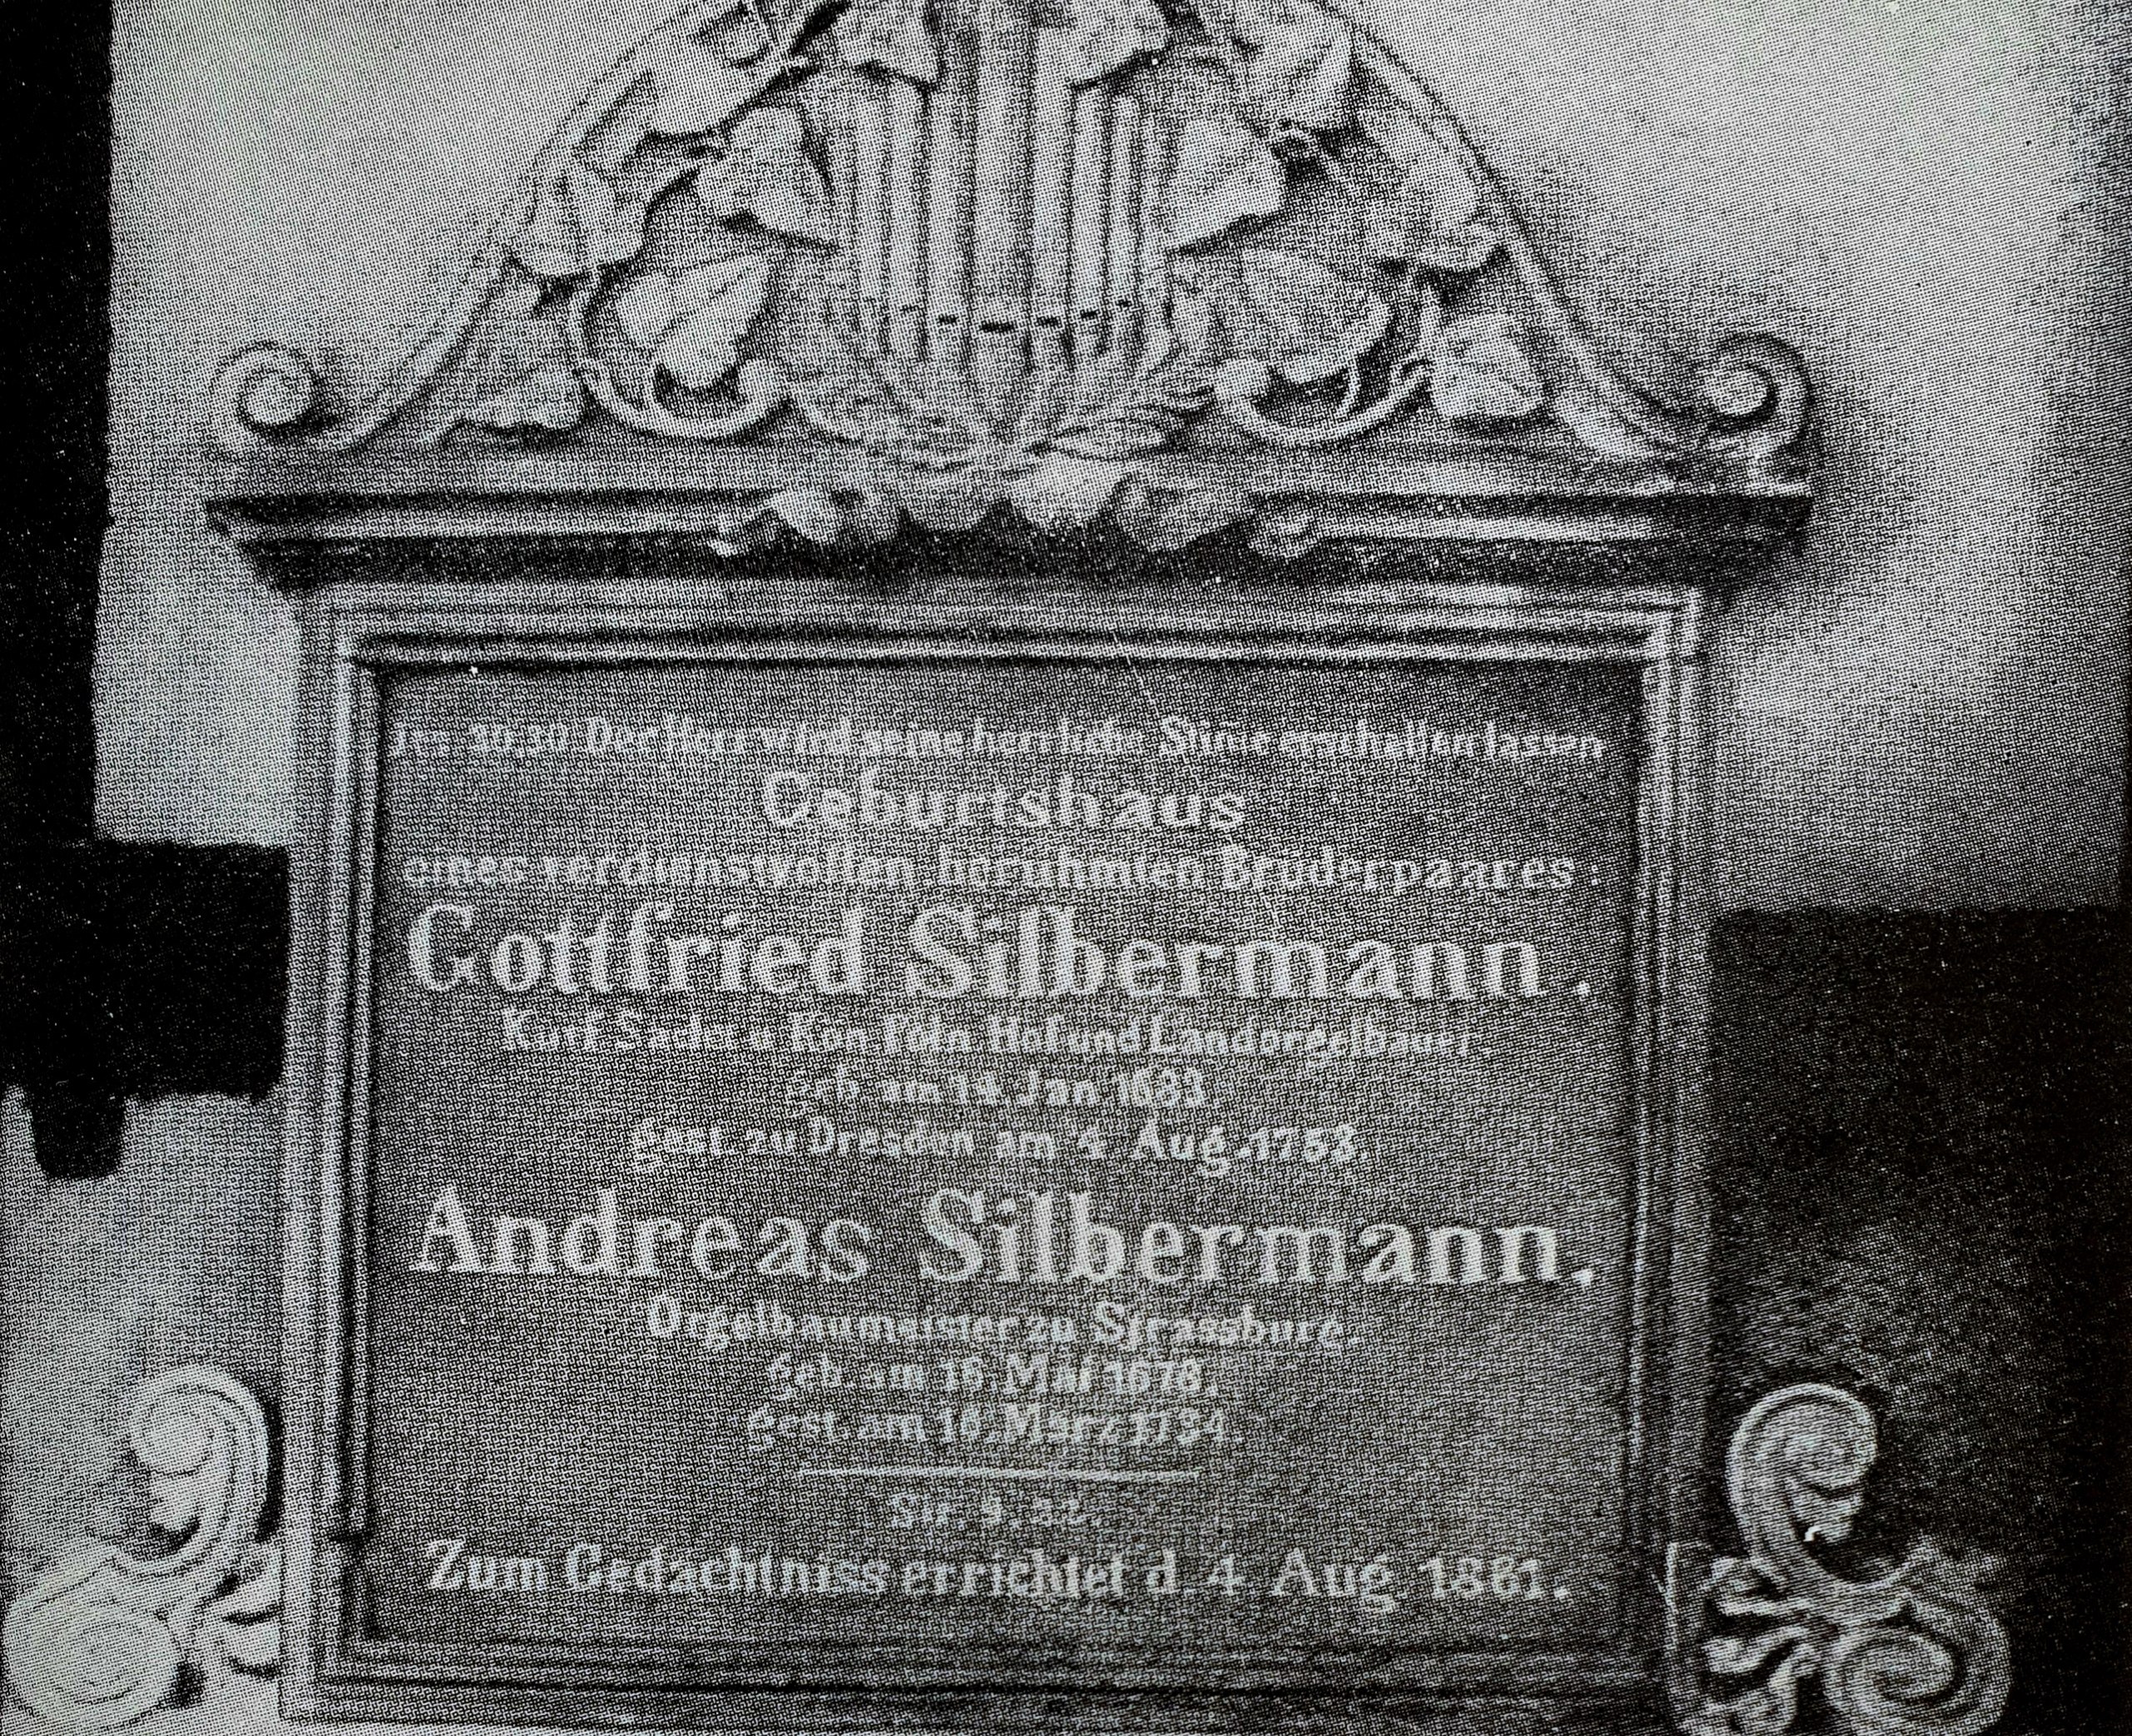 Jes. 30.30. Der Herr wird seine herrliche Stime erschallen lassen
Geburtshaus
eines verdienstvollen berühmten Brüderpaares:
Gottfried Silbermann.
Kurf. Sächs. u. Kön. Poln. Hof und Landorgelbauer.
geb. am 14. Jan. 1683.
gest. zu Dresden am 4. Aug. 1753.
Andreas Silbermann,
Orgelbaumeister zu Strassburg.
geb. am 16. Mai 1678.
gest. am 16. März 1734.
Sir. 9, 22.
Zum Gedächtniss errichtet d. 4. Aug. 1861.